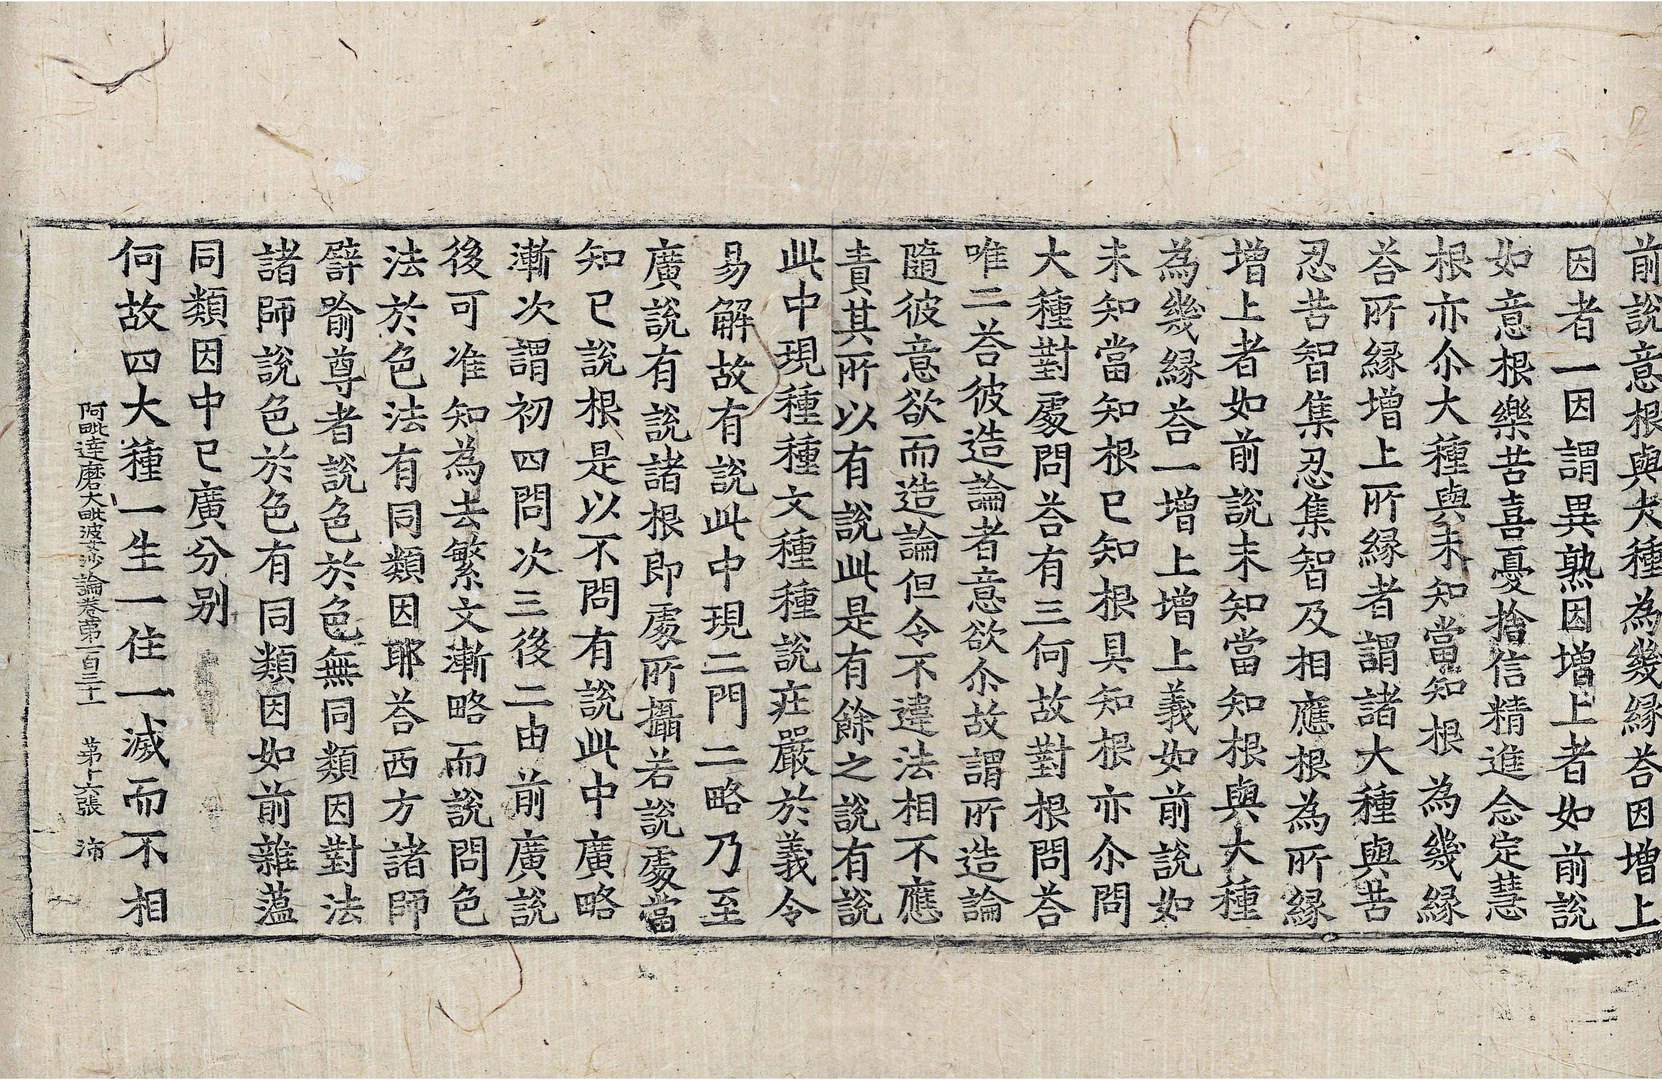 前說意根與大種為幾縁荅因增上
因者一因謂異熟因增上者如前說
如意根樂苦喜憂捨信精進念定慧
根亦尒大種與未知當知根為幾縁
荅所縁增上所縁者謂諸大種與苦
忍苦智集忍集智及相應根為所縁
增上者如前說未知當知根與大種
為幾縁荅一增上增上義如前說如
未知當知根已知根具知根亦尒問
大種對處問荅有三何故對根問荅
唯二荅彼造論者意欲尒故謂所造論
隨彼意欲而造論但令不違法相不應
責其所以有說此是有餘之說有說
此中現種種文種種說莊嚴於義令
易解故有說此中現二門二略乃至
廣說有說諸根即處所攝若說處當
知已說根是以不問有說此中廣略
漸次謂初四問次三後二由前廣說
後可准知為去繁文漸略而說問色
法於色法有同類因耶荅西方諸師
譬喻尊者說色於色無同類因對法
諸師說色於色有同類因如前雜蘊
同類因中已廣分別
何故四大種一生一住一滅而不相
阿毗達磨大毗婆沙論卷第一百三十一 第十六張 沛